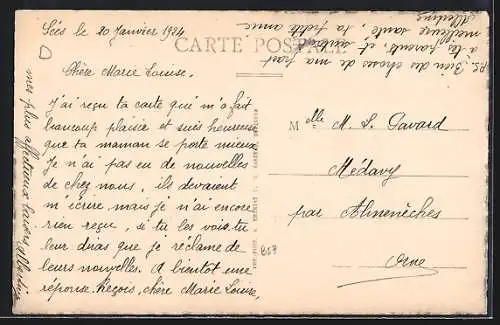 Sées le 20 Janvier 1924
CARTE POSTALE
Chère Marie Louise,
J'ai reçu ta carte qui m'a fait
beaucoup plaisir et suis heureuse
que ta maman se porte mieux
Je n'ai pas eu de nouvelles
de chez nous, ils devaient
m'écrire mais je n'ai encore
rien reçu, si tu les vois tu
leur diras que je réclame de
leurs nouvelles. A bientôt une
réponse. Reçois, chère Marie Louise,
mes plus affectueux baisers
P.S. Bien des choses de ma part
à tes parents, et surtout
meilleure santé, ta petite amie
Mlle M. L. Gavard
Médavy
par Almenèches
Orne